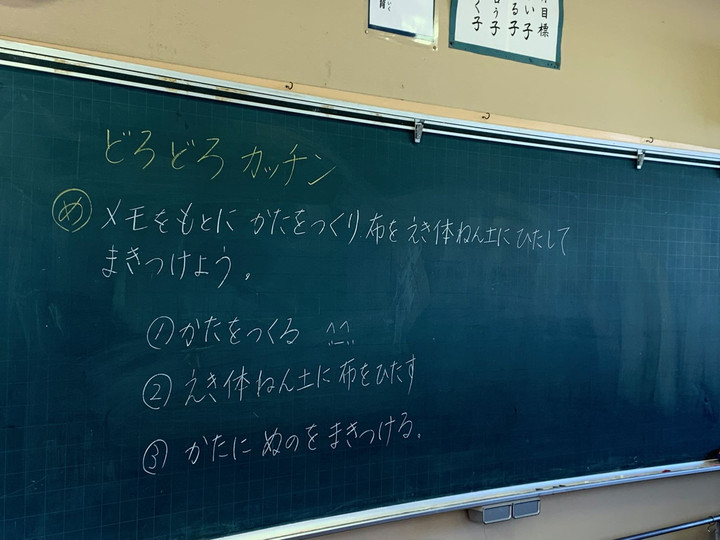 目標
い子
る子
う子
く子
どろどろカッチン
め メモをもとに かたをつくり、布を えき体ねん土に ひたして
まきつけよう。
① かたをつくる ^^
② えき体ねん土に 布をひたす
③ かたに ぬのを まきつける。